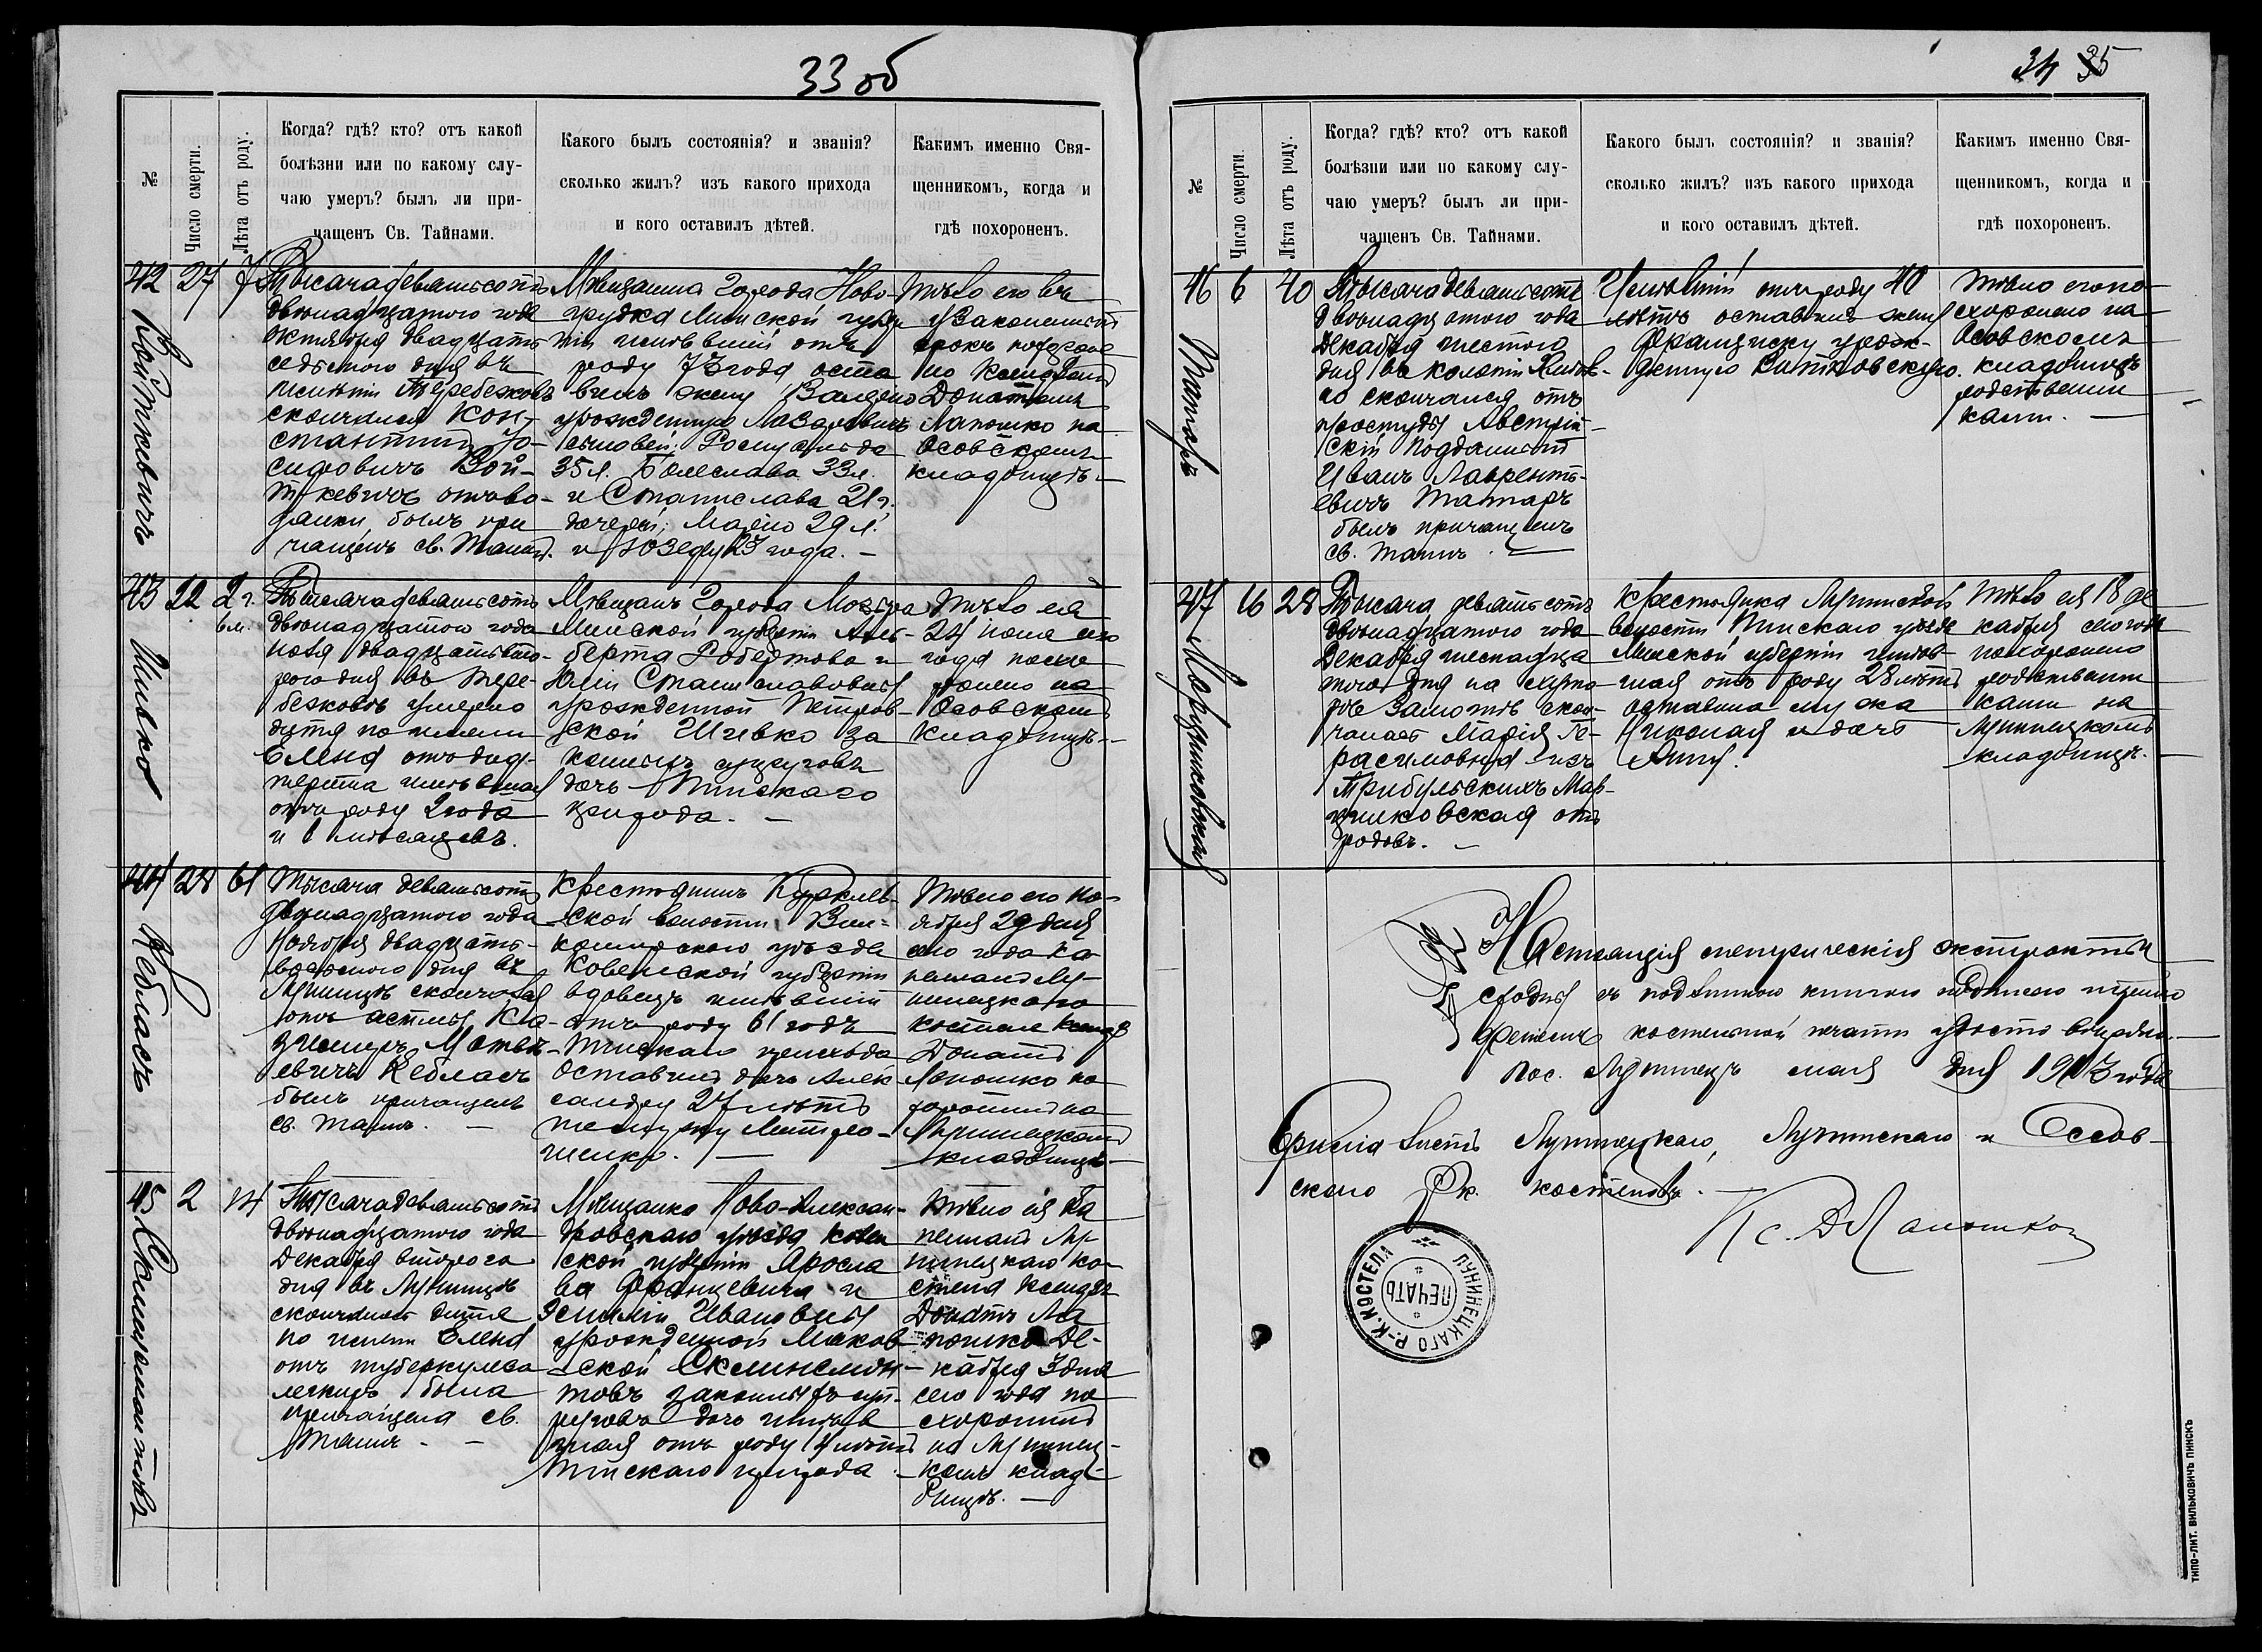 33 об
№
Число смерти.
Лѣта отъ роду.
Когда? гдѣ? кто? отъ какой
болѣзни или по какому слу-
чаю умеръ? былъ ли при-
чащенъ Св. Тайнами.
Какого былъ состоянія? и званія?
сколько жилъ? изъ какого прихода
и кого оставилъ дѣтей.
Каким​ъ именно Свя-
щенникомъ, когда и
гдѣ похороненъ.
42
27
Войткевичъ
Тысяча девятьсотъ
двѣнадцатого года
октября двадцать
седьмого дня въ
имѣніи Теребежовъ
скончался Кон-
стантинъ Іо-
сифовичъ Вой-
ткевичъ отъ
былъ при
чащенъ св. Таинъ.
Мѣщанина города Ново-
грудка Минской губер
ніи имѣвшій отъ
роду 73 года оста
вилъ жену
урожденную Лазаревичъ
сыновей: Ромуальда
35 л. Болеслава 33 л.
и Станислава 21 г.
дочерей: Марію 29 л.
и Юзефу 23 года. —
тѣло его въ
узаконенный
срокъ похороне
но Ксендзомъ
Донатомъ
Лапошко на
Осовскомъ
кладбищѣ. —
43
22
2 г.
6 м.
Шивко
Тысяча девятьсотъ
двѣнадцатого года
ноября двадцать вто-
рого дня въ Тере-
бежовѣ умерло
дитя по имени
Елена отъ диф-
терита имѣвшая
отъ роду 2 года
и 6 мѣсяцевъ.
Мѣщанъ города Мозыря
Минской губерніи Аль-
берта Робертова и
Юліи Станиславовны
урожденной Петров-
ской Шивко за
конныхъ супруговъ
дочь Пинскаго
прихода. —
Тѣло ея
24 ноя сего
года похо
ронено на
Осовскомъ
кладбищѣ. —
44
28
61
Кебласъ
Тысяча девятьсотъ
двѣнадцатого года
ноября двадцать
восьмого дня въ
Лунинцѣ скончался
отъ астмы Ка-
зимиръ Матвѣ-
евичъ Кебласъ
былъ причащенъ
св. таинъ. —
Крестьянинъ
ской волости Вил-
комирскаго уѣзда
Ковенской губерніи
вдовецъ имѣвшій
отъ роду 61 годъ
Пинскаго прихода
оставилъ дочь Алек
сандру 27 лѣтъ
Тѣло его но-
ября 29 дня
сего года ка
пелланъ Лу-
нинецкаго
костела Ксендзъ
Донатъ
Лапошко по
хоронилъ на
Лунинецкомъ
кладбищѣ. —
45
2
14
Тысяча девятьсотъ
двѣнадцатого года
Декабря второго
дня въ Лунинцѣ
скончалось дитя
по имени Елена
отъ туберкулеза
легкихъ была
причащена св.
таинъ. —
Мѣщанко Ново-Алексан-
дровскаго уѣзда Ковен
ской губерніи Яросла
ва Францевича и
Эмиліи Ивановны
урожденной Маков
ской
товъ законныхъ суп-
руговъ дочь имѣв
шая отъ роду 14 лѣтъ
Пинскаго прихода. —
Тѣло ея ка
пелланъ Лу
нинецкаго ко-
стела Ксендзъ
Донатъ Ла
пошко де-
кабря 3 дня
сего года по
схоронилъ
на Лунинец-
комъ клад-
бищѣ. —
34 35
№
Число смерти.
Лѣта отъ роду.
Когда? гдѣ? кто? отъ какой
болѣзни или по какому слу-
чаю умеръ? былъ ли при-
чащенъ Св. Тайнами.
Какого былъ состоянія? и званія?
сколько жилъ? изъ какого прихода
и кого оставилъ дѣтей.
Какимъ именно Свя-
щенникомъ, когда и
гдѣ похороненъ.
46
6
40
Татаръ
Тысяча девятьсотъ
двѣнадцатого года
декабря шестого
дня въ
скончался отъ
простуды Австрій-
скій подданный
Иванъ Лаврентъ-
евичъ Татаръ
былъ причащенъ
св. таинъ. —
Имѣвшій отъ роду 40
лѣтъ оставилъ жену
Францишку урож-
денную
Тѣло его по-
схоронено на
Осовскомъ
кладбищѣ
родственни
ками. —
47
16
28
Марцинковская
Тысяча девятьсотъ
двѣнадцатого года
Декабря шестнадца
того дня на хуто
рѣ Замотѣ скон-
чалась Марія Ге-
расимовна изъ
Трибульскихъ Мар-
цинковская отъ
родовъ. —
Крестьянка Лунинской
волости Пинскаго уѣзда
Минской губерніи имѣв-
шая отъ роду 28 лѣтъ
оставила мужа
Николая и дочь
Анну.
Тѣло ея 18 де
кабря сего года
похоронено
родственни
ками на
Лунинецкомъ
кладбищѣ. —
Настоящія метрическія экстракты
сходны съ подлинною книгою подписью и прило
женіемъ костельной печати удостовѣряю.
пос. Лунинецъ мая дня 1913 года
Лунинецкаго, Лунинскаго и Осов-
скаго Рк. костеловъ. —
Кс. Д Лапошко
ЛУНИНЕЦКАГО Р.-К. КОСТЕЛА
ПЕЧАТЬ
ТИПО-ЛИТ. ВИЛЬКОВИЧЪ ПИНСКЪ